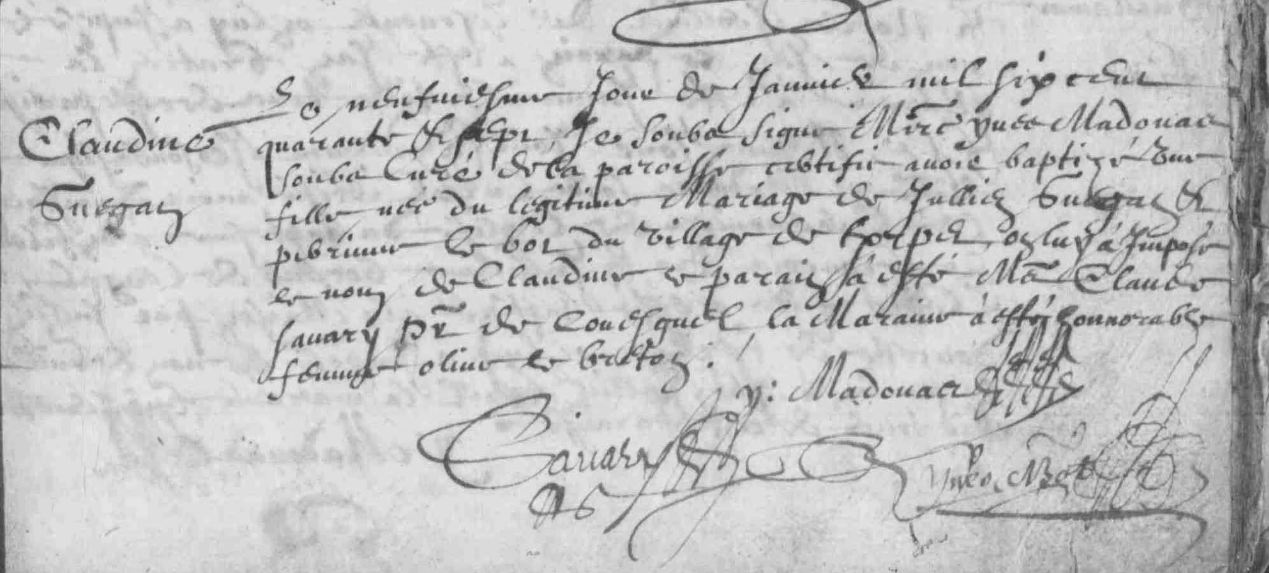 Claudine
Guegan
Le neufviesme Jour de Janvier mil six cent
quarante & sept, Je soubs signé Mire yves Madouas
soubs Curé de la paroisse certifie avoir baptizé une
fille née du legitime Mariage de Jullien Guegan &
perrinne le bot du village de on luy a Imposé
le nom de Claudine le parain a esté Mre Claude
savary pr de Couesquel la Maraine a esté honnorable
femme olive le breton.
y: Madouas
Savary
Yves